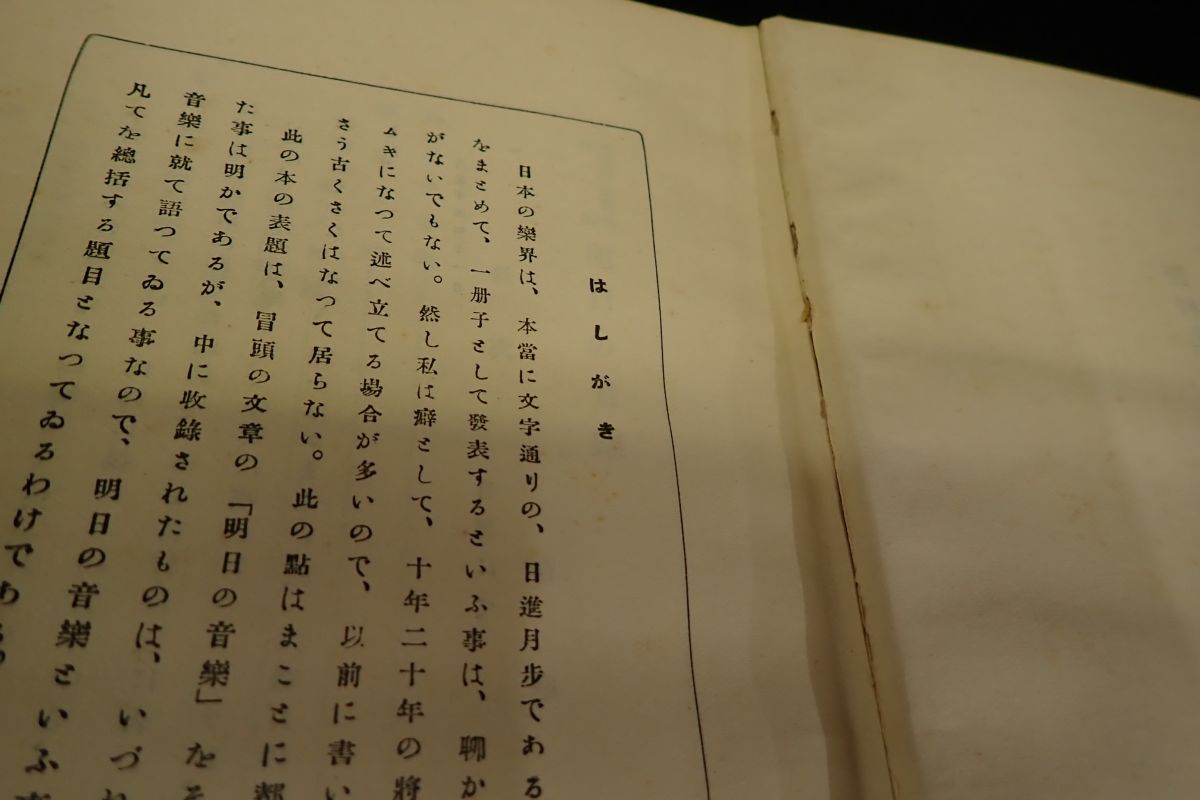 はしがき
日本の樂界は、本當に文字通りの、日進月步である
をまとめて、一册子として發表するといふ事は、聊か
がないでもない。然し私は癖として、十年二十年の將
ムキになつて述べ立てる場合が多いので、以前に書い
さう古くさくはなつて居らない。此の點はまことに都
此の本の表題は、冒頭の文章の「明日の音樂」をそ
た事は明かであるが、中に收錄されたものは、いづれ
音樂に就て語つてゐる事なので、明日の音樂といふ
凡てを總括する題目となつてゐるわけである。